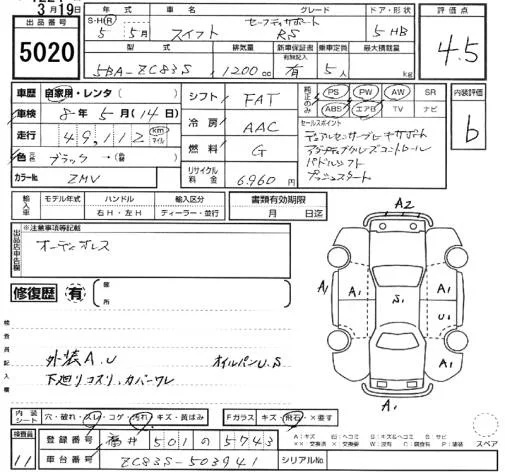 3月19日
出品番号
5020
年式 車名 グレード ドア・形状
S・H・R 5年 5月 スイフト セーフティサポート RS 5 HB
評価点
4.5
型式 排気量 新車保証書 乗車定員 最大積載量
有無記入
5BA-ZC83S 1200cc 有 5人 kg
車歴 自家用・レンタ( )
車検 8年5月(14日)
走行 49,112 km マイル
色 元色 ブラック→(替)
カラーNo. ZMV
シフト FAT
冷房 AAC
燃料 G
リサイクル料金 6,960円
純正のみ
PS PW AW SR
ABS エアB TV ナビ
セールスポイント
デュアルセンサーブレーキサポート
アダプティブクルーズコントロール
パドルシフト
プッシュスタート
内装評価
b
輸入車 モデル年式 ハンドル 輸入区分
右H・左H ディーラー・並行
書類有効期限
月 日迄
出品店申告欄
※注意事項等記載
オーディオレス
修復歴 有
箇所
検査員記入欄
外装A.U オイルパンU.S
下廻りコスリ、カバーワレ
A2
A1 A1 S1 A1 A1
U1
A1
内装シート 穴・破れ・スレ・コゲ・汚れ・キズ・黄ばみ
Fガラス キズ・飛石・×要す
検査員
11
登録番号 福井 501 の 5743
車台番号 ZC83S-503941
シリアルNo.
スペア